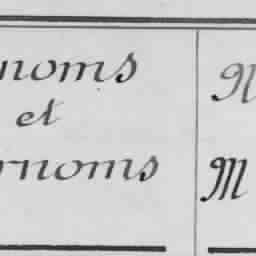 noms
et
rnoms
N
M